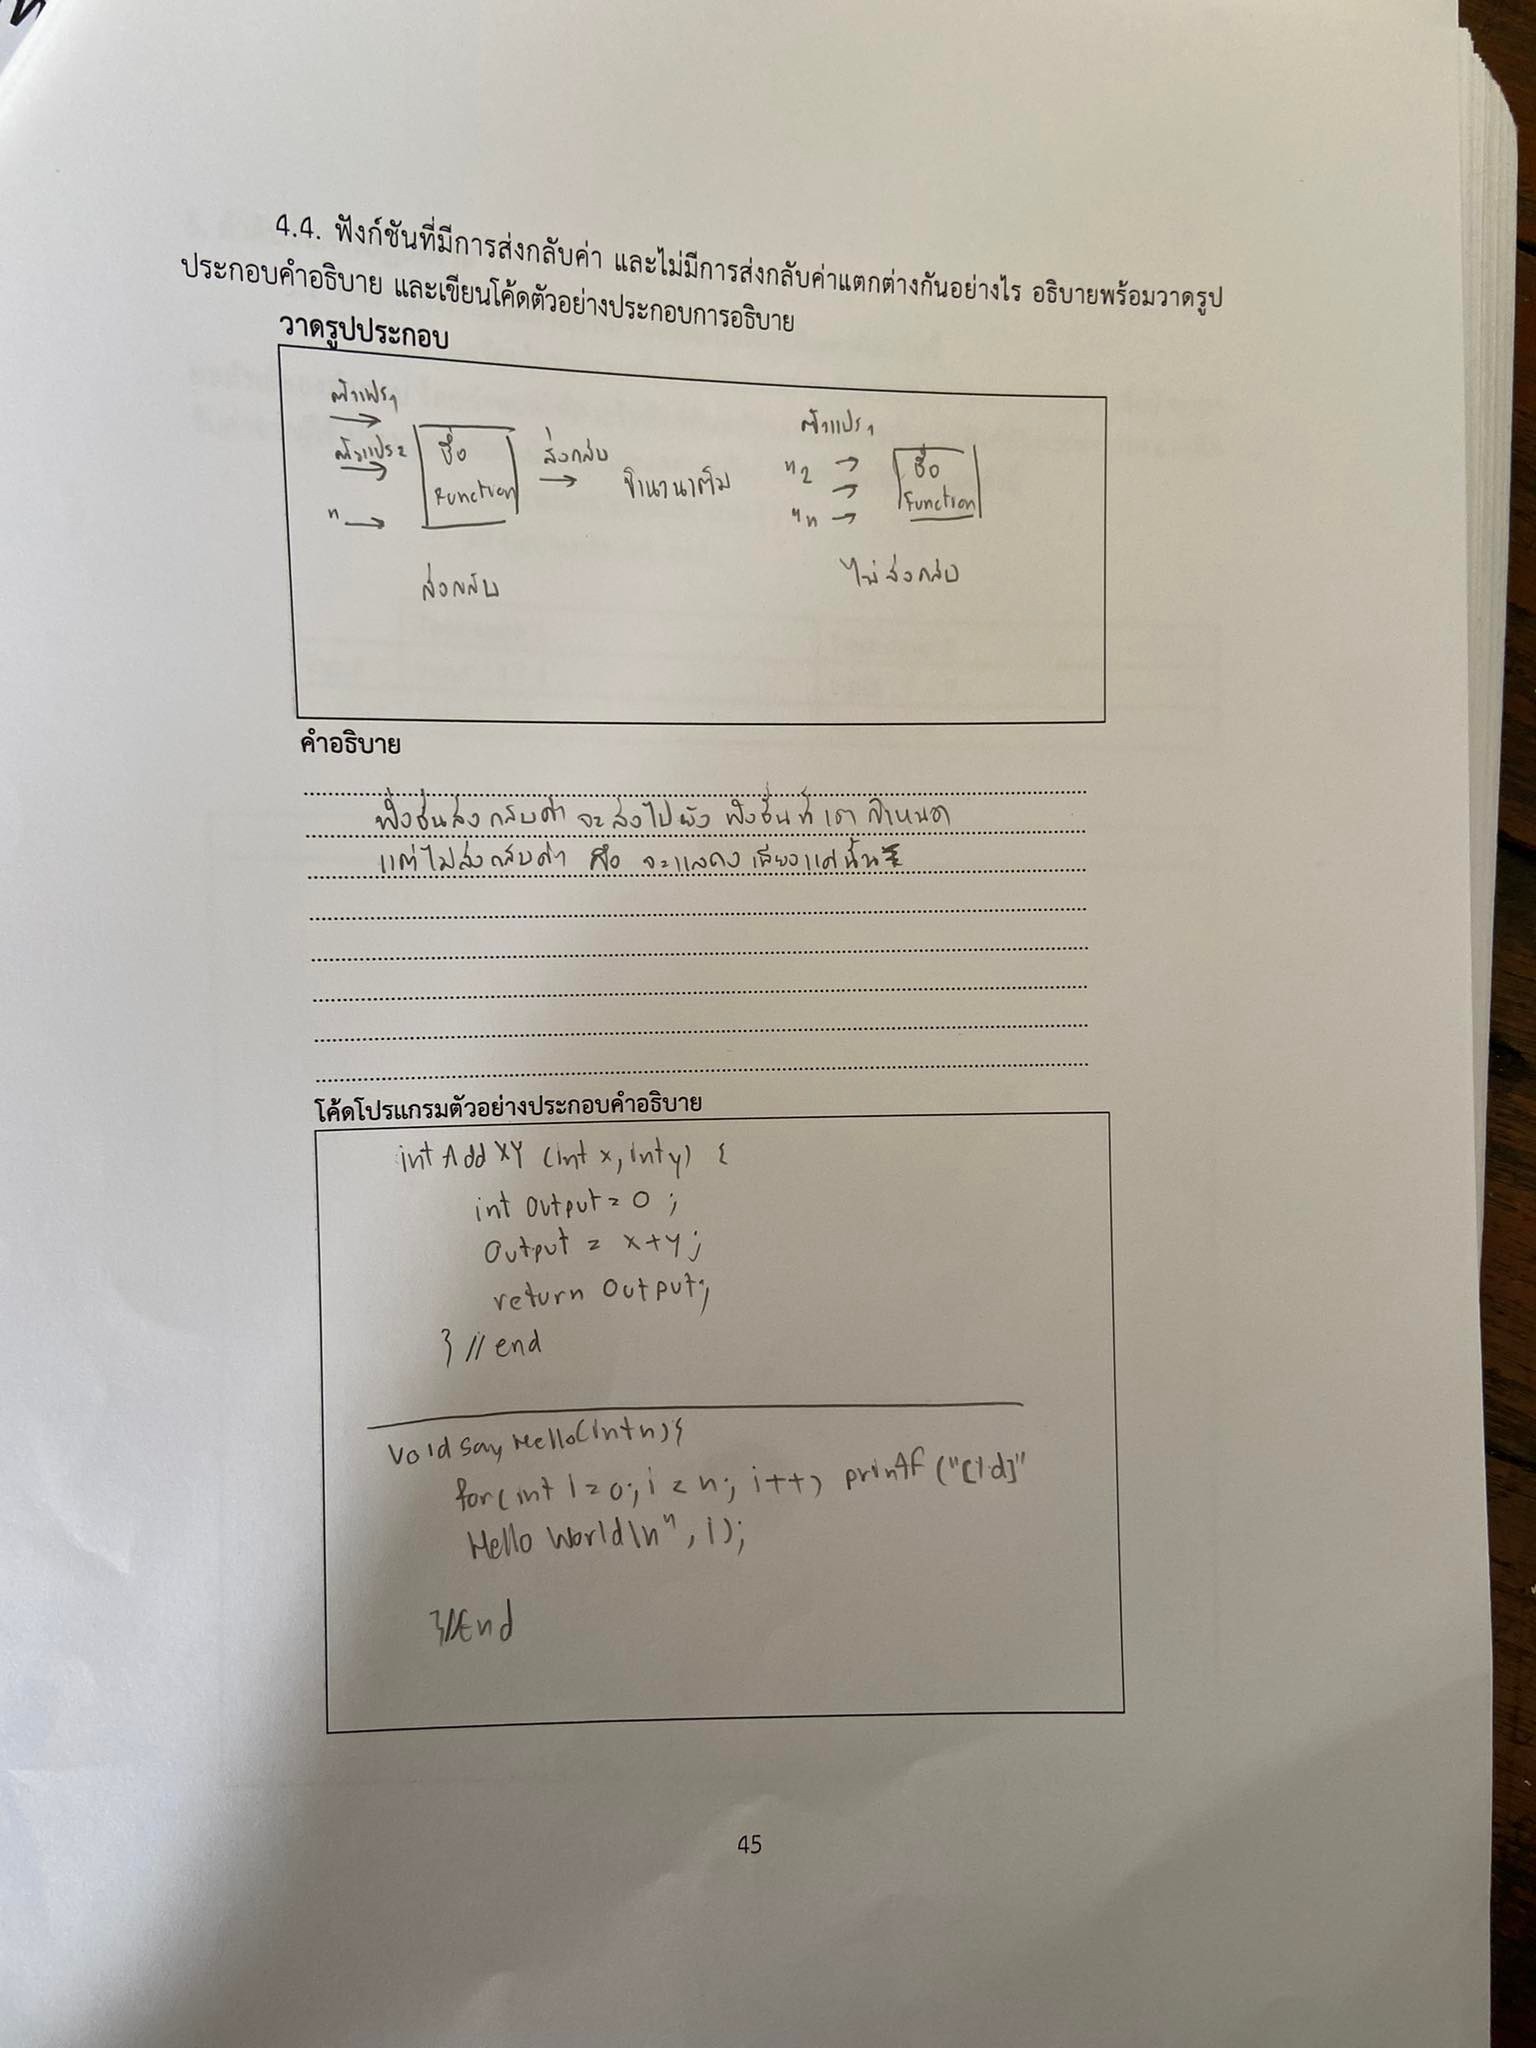 4.4. ฟังก์ชันที่มีการส่งกลับค่า และไม่มีการส่งกลับค่าแตกต่างกันอย่างไร อธิบายพร้อมวาดรูป
ประกอบคำอธิบาย และเขียนโค้ดตัวอย่างประกอบการอธิบาย
วาดรูปประกอบ
ตัวแปร1
ตัวแปร2
n
ชื่อ
Function
ส่งกลับ
ส่งกลับ
ตัวแปร1
"2
"n
ชื่อ
Function
ไม่ส่งกลับ
คำอธิบาย
ฟังชั่นส่งกลับค่า จะส่งไปยัง ฟังชั่นที่เรากำหนด
แต่ไม่ส่งกลับค่า คือ จะแสดงเพียงแค่นั้น
โค้ดโปรแกรมตัวอย่างประกอบคำอธิบาย
int Add XY (int x, int y) {
int Output = 0 ;
Output = x+y;
return Output;
} // end
Void Say Hello(int n) {
for(int i=0; i<n; i++) printf ("[%d]"
Hello World\n", i);
}//End
45